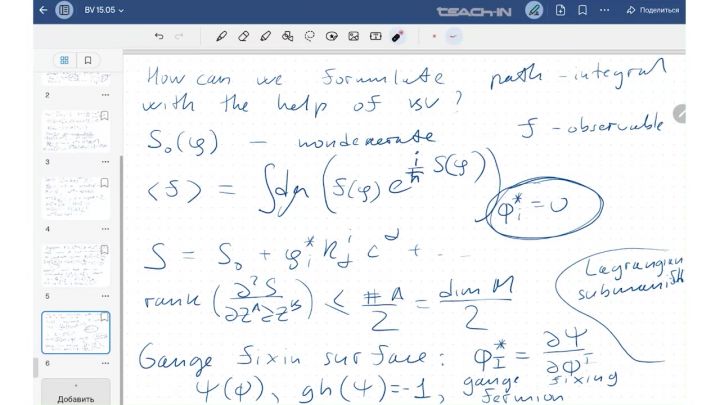 BV 15.05
TEACH-IN
Поделиться
How can we formulate path-integral
with the help of BV?
S₀(φ) — nondenerate f - observable
⟨f⟩ = ∫dφ (f(φ) e^{i/ħ S(φ)}) φᵢ* = 0
S = S₀ + φᵢ* Rⁱ_α c^α + ...
Lagrangian
submanifold
rank (∂²S/∂z^A∂z^B) ≤ #A/2 = dim M/2
Gauge fixin surface: Φ_I* = ∂Ψ/∂Φ^I
Ψ(Φ), gh(Ψ)=-1, gauge fixing
fermion
2
3
4
5
6
Добавить